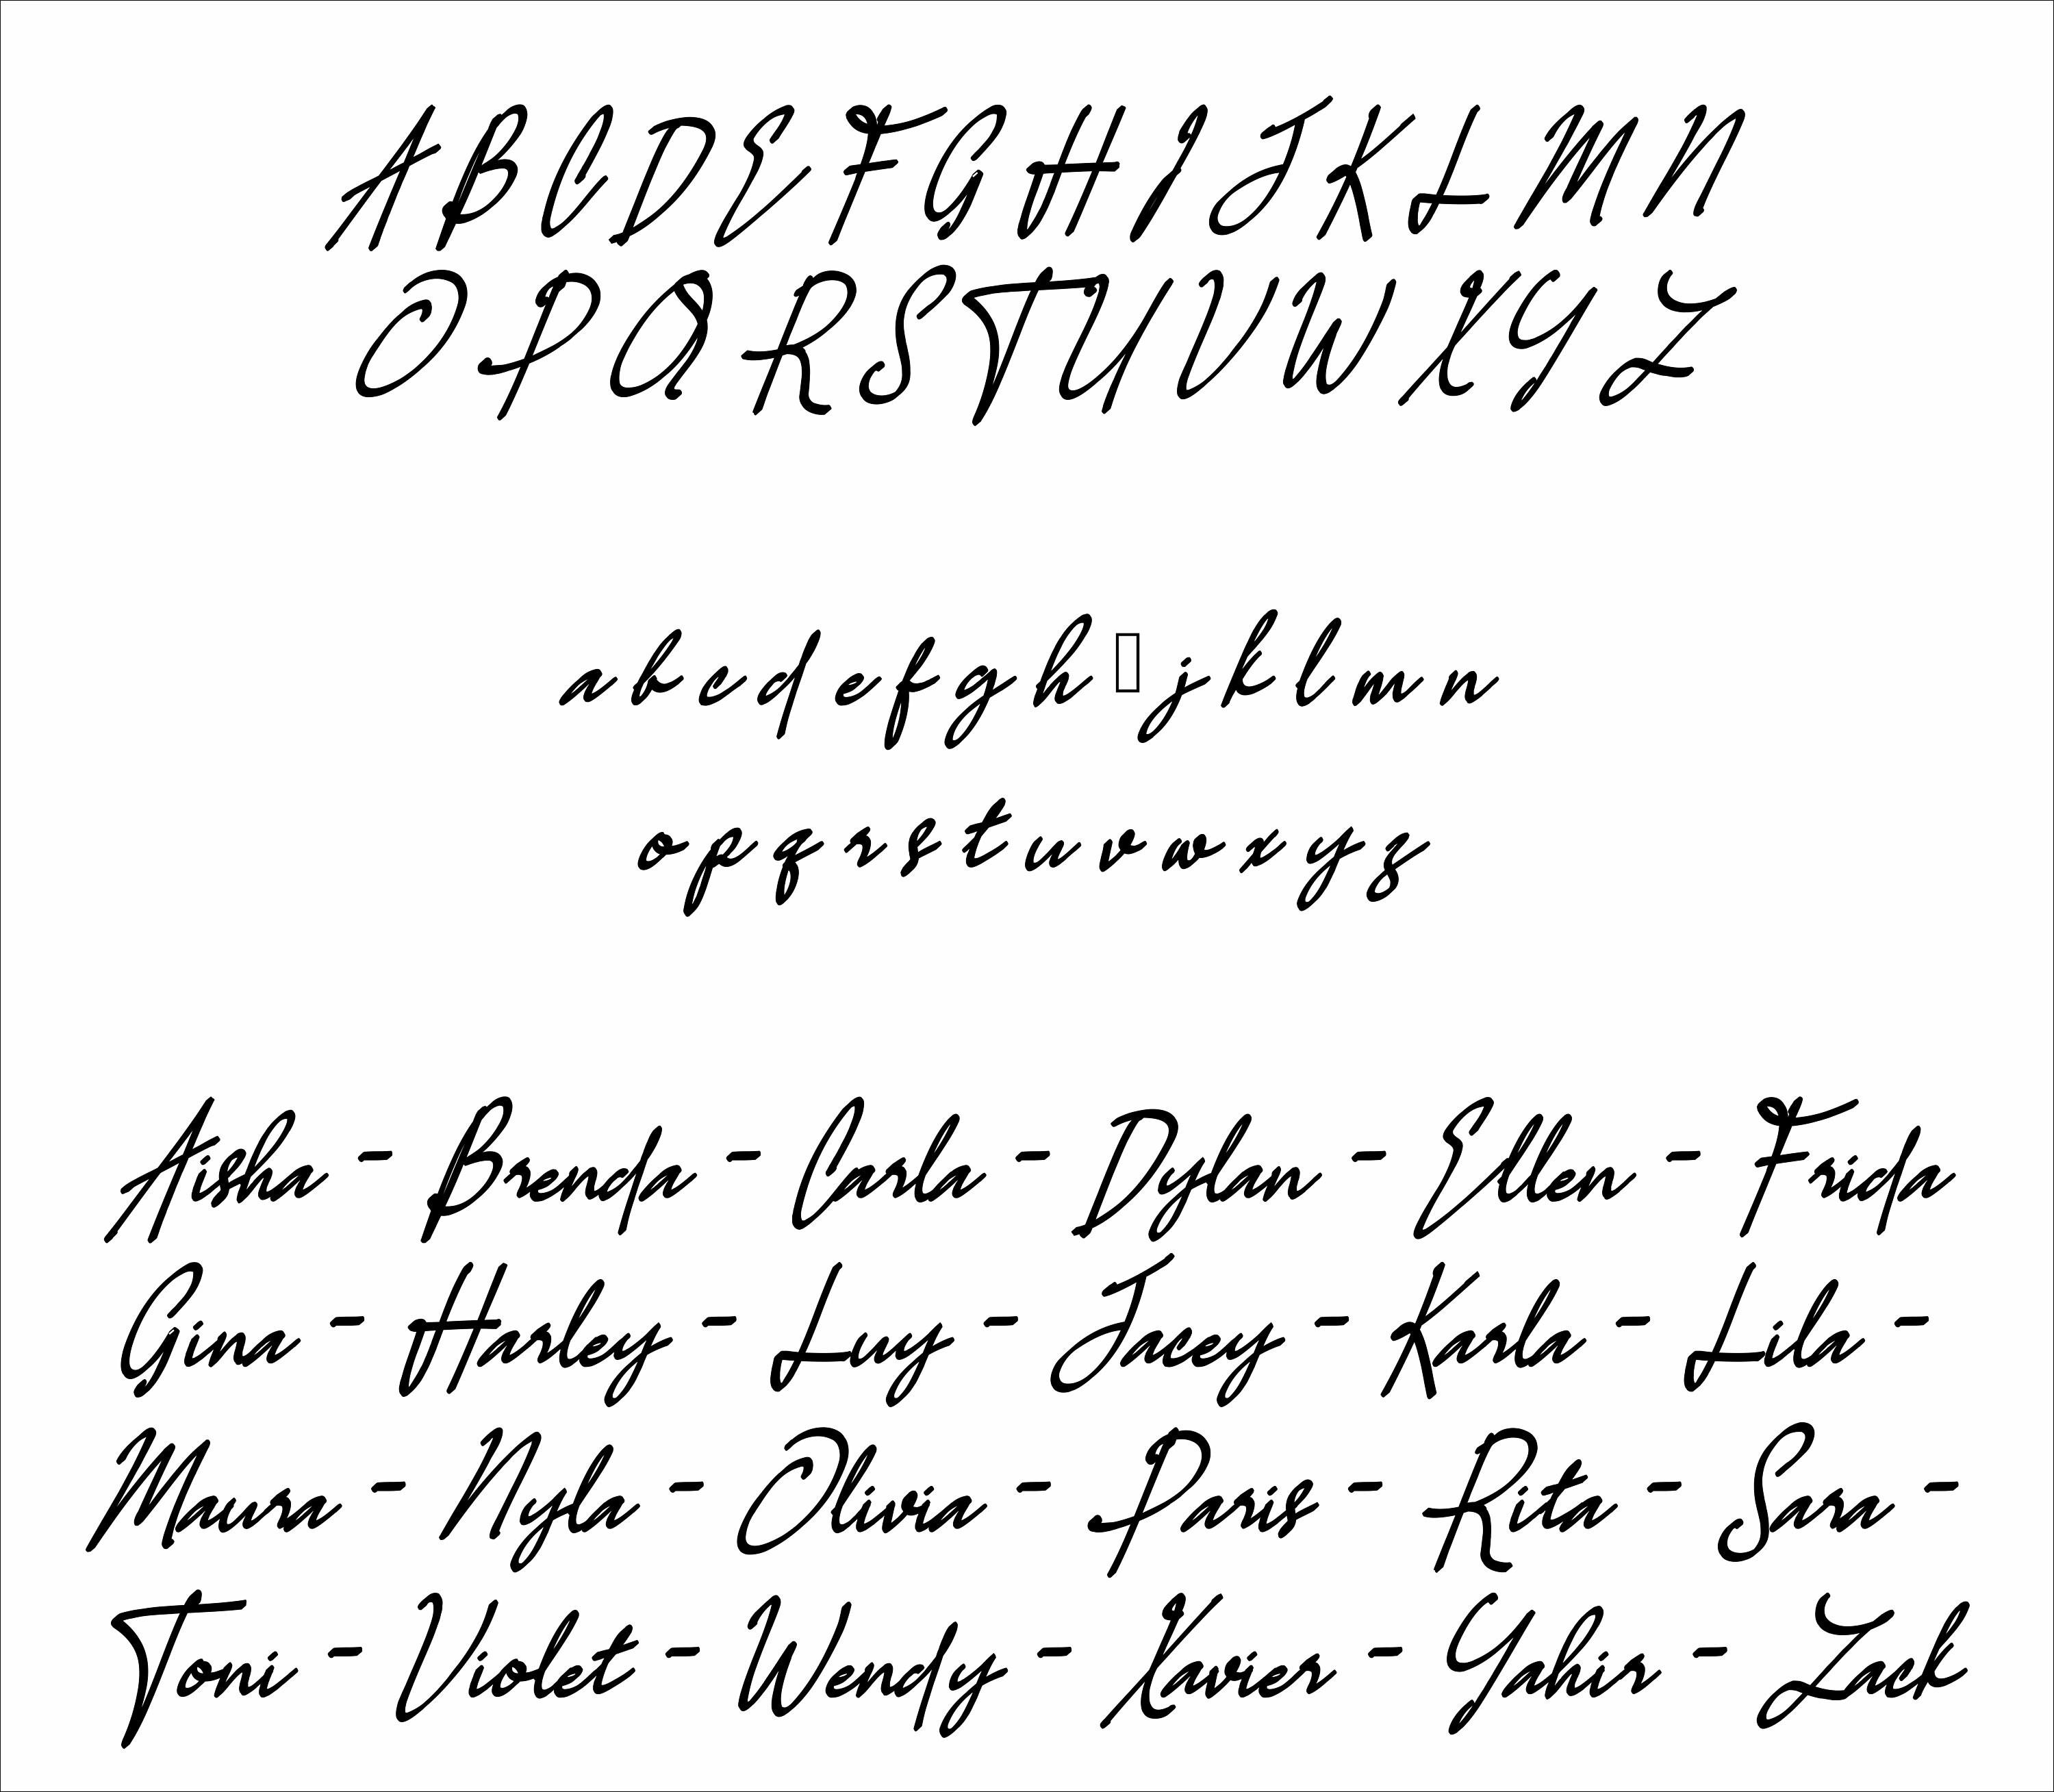 A B C D E F G H I J K L M N
O P Q R S T U V W X Y Z
a b c d e f g h j k l m n
o p q r s t u v w x y z
Aisha - Brenda - Carla - Dylan - Ellen - Frida
Gina - Harley - Lucy - - Karla - Lila -
- Nyla - Olivia - Paris - Rita - -
Toni - Violet - Wendy - Xavier - Yahir - Zack